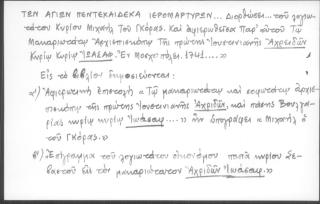 ΤΩΝ ΑΓΙΩΝ ΠΕΝΤΕΚΑΙΔΕΚΑ ΙΕΡΟΜΑΡΤΥΡΩΝ... Διορθώσει... τοῦ λογιω-
τάτου Κυρίου Μιχαὴλ τοῦ Γκόρας. Καὶ ἀφιερωθεῖσα Παρ' αὐτοῦ Τῷ
Μακαριωτάτῳ Ἀρχιεπισκόπῳ Τῆς πρώτης Ἰουστινιανῆς Ἀχρειδῶν
Κυρίῳ Κυρίῳ ΙΩΑΣΑΦ. Ἐν Μοσχοπόλει. 1741....»
Εἰς τὸ βιβλίον δημοσιεύονται:
α') Ἀφιερωτικὴ ἐπιστολὴ «Τῷ μακαριωτάτῳ καὶ σεμνοτάτῳ ἀρχιε-
πισκόπῳ τῆς πρώτης Ἰουστινιανῆς Ἀχριδῶν, καὶ πάσης Βουλγα-
ρίας κυρίῳ κυρίῳ Ἰωάσαφ....» ἣν ὑπογράφει «Μιχαὴλ ὁ
τοῦ Γκόρας.»
β') «Ἐπίγραμμα τοῦ λογιωτάτου οἰκονόμου παπᾶ κυρίου Σε-
βαστοῦ εἰς τὸν μακαριώτατον Ἀχριδῶν Ἰωάσαφ.»